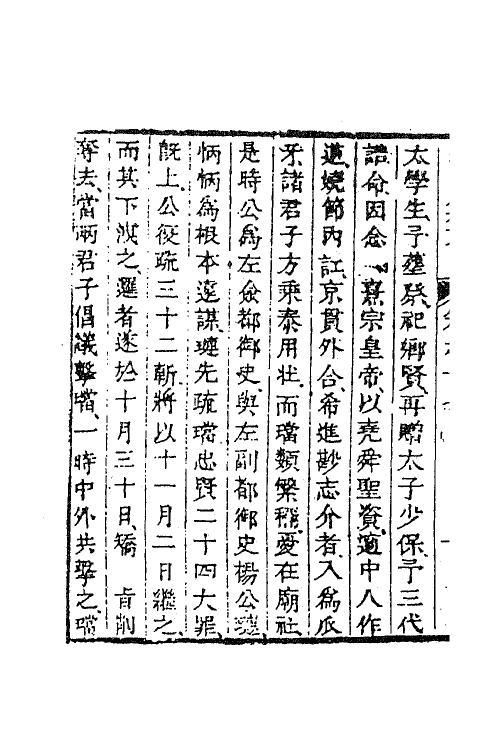 太學生予塋祭祀鄉賢再贈太子少保予三代
誥命因念熹宗皇帝以堯舜聖資適中八作
遘嬈節內訌京貫外合希進尠志介者入為瓜
牙諸君子方乘泰用壯而璫類繁稱憂在廟社
是時公為左僉都御史與左副都御史楊公漣
怲怲為根本遠謀漣先疏璫忠賢二十四大罪
旣上公復疏三十二斬將以十一月二日繼之
而其下洩之邏者遂於十月三十日矯 旨削
奪去當兩君子倡議擊璫一時中外共舉之璫